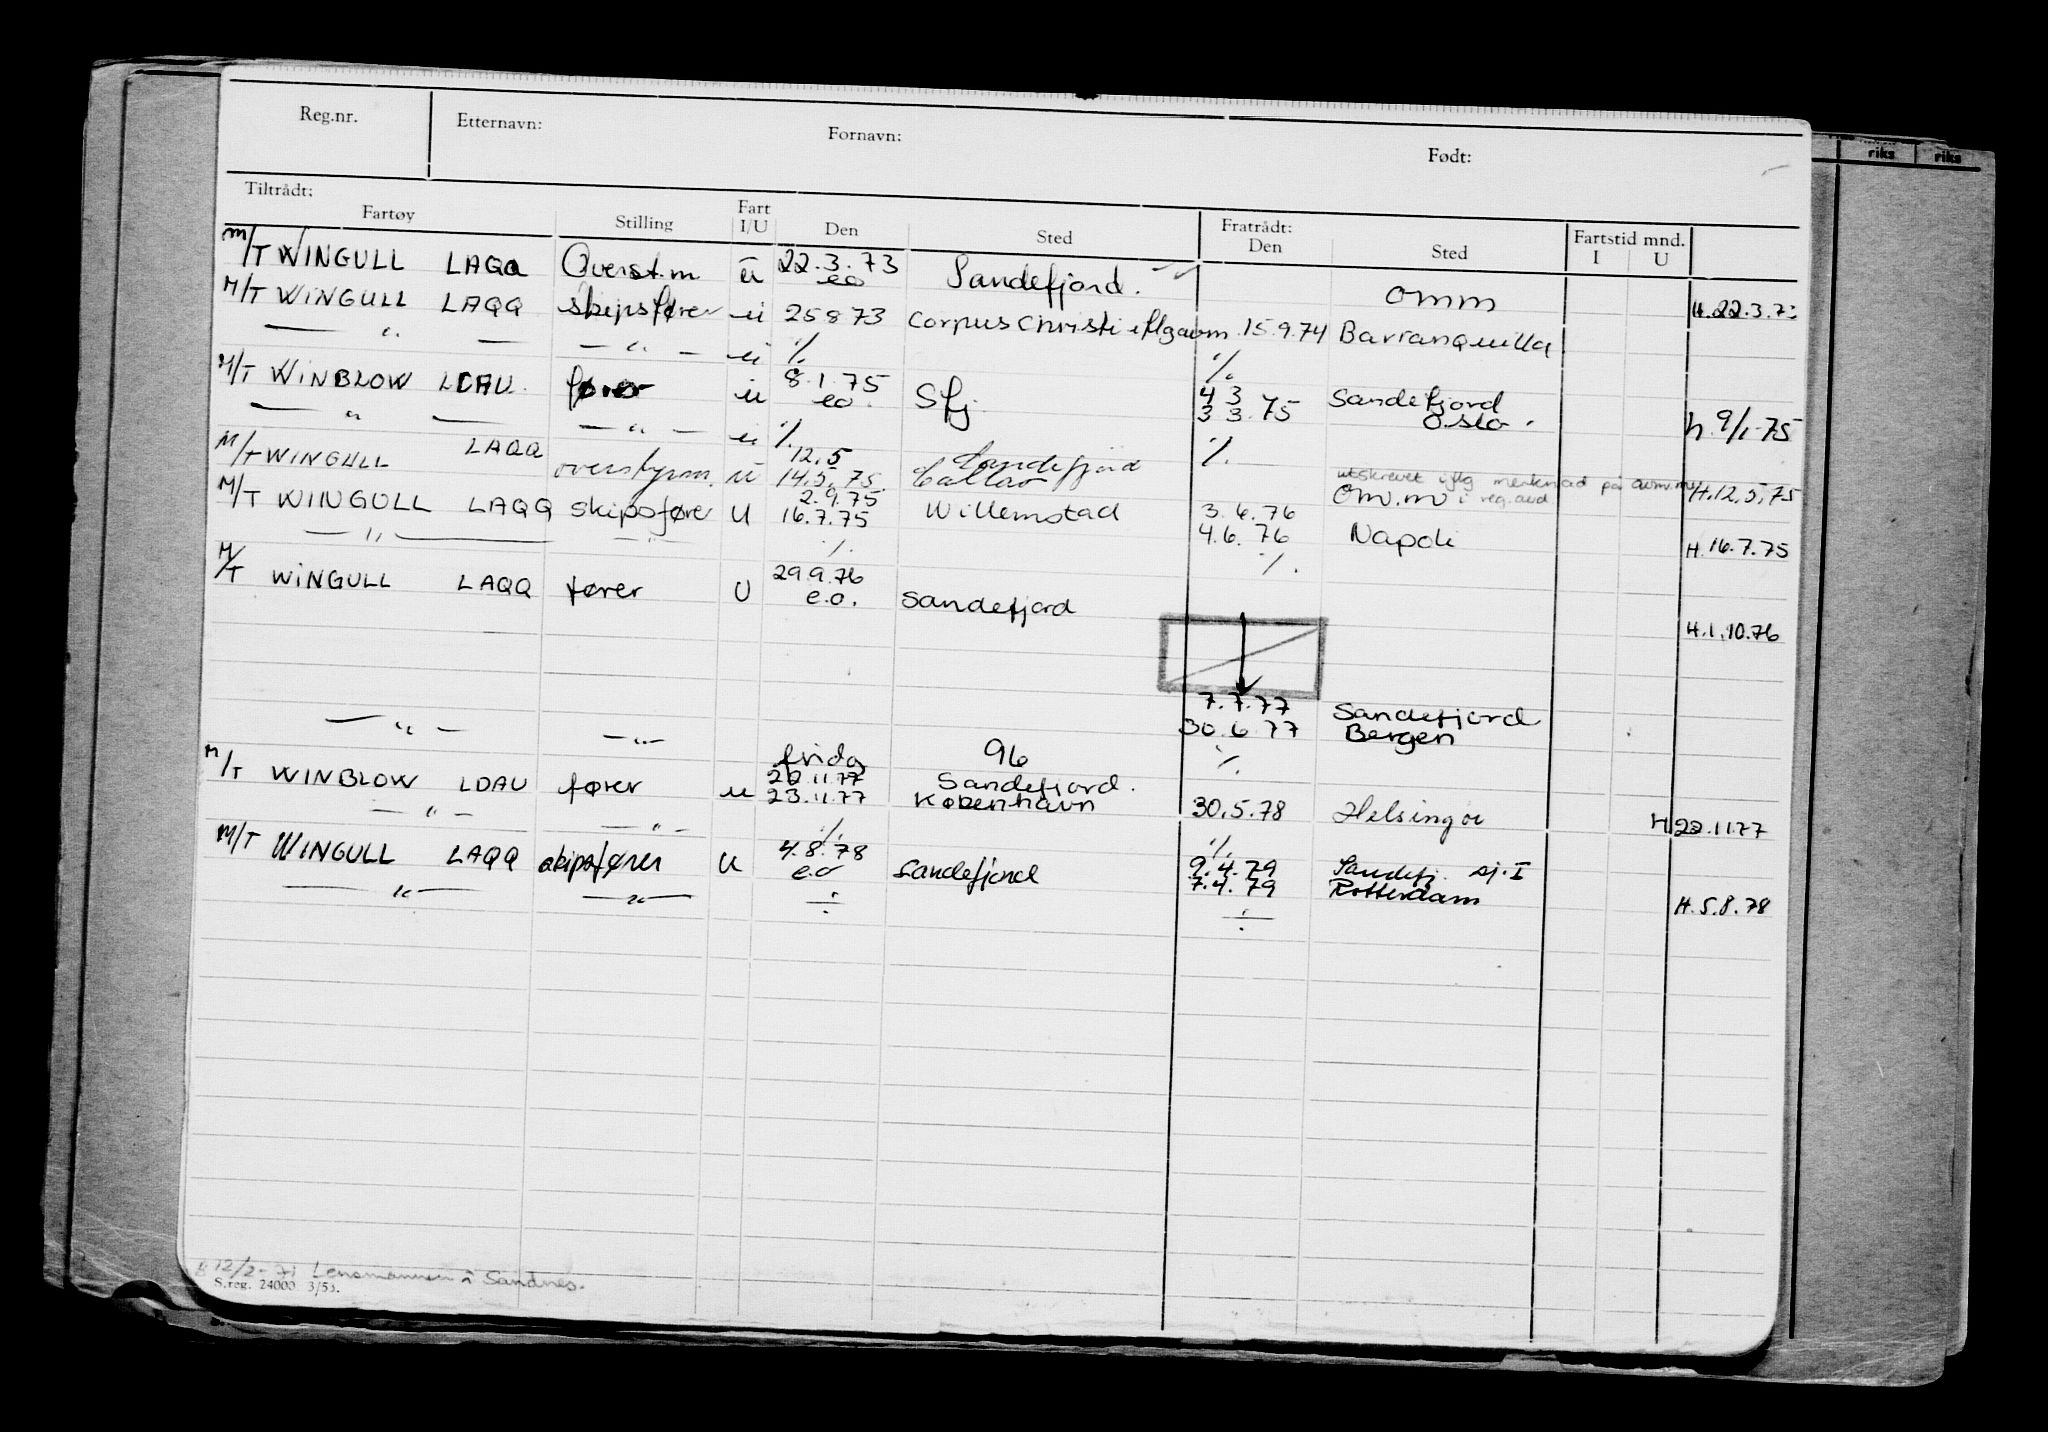 Reg.nr. Etternavn: Fornavn: Født:
riks riks
Tiltrådt: Fratrådt:
Fartøy Stilling Fart I/U Den Sted Den Sted Fartstid mnd. I U
M/T WINGULL LAQQ Overst.m ū 22.3.73 eo Sandefjord. omm H.22.3.73
M/T WINGULL LAQQ skipsfører ū 25873 Corpus Christi iflg avm. 15.9.74 Barranquilla
— " — — " — ū ٪ ٪
M/T WINBLOW LDAU. fører ū 8.1.75 eo. Sfj. 4 3 Sandefjord
3 3.75 Oslo. h.9/1-75
— " — — " — ū ٪ ٪
M/T WINGULL LAQQ overstyrm. ū 12.5 Sandefjord utskrevet iflg merknad på avm.
14.5.75. Callao om.m i reg.avd H.12.5.75
M/T WINGULL LAQQ skipsfører U 2.9.75
16.7.75 Willemstad 3.6.76
4.6.76 Napoli H.16.7.75
— " — — " — ٪ ٪
M/T WINGULL LAQQ fører U 29.9.76
e.o. Sandefjord H.1.10.76
7.7.77 Sandefjord
30.6.77 Bergen
— " — — " — frida 96 ٪
M/T WINBLOW LDAU fører u 22.11.77 Sandefjord.
23.11.77 København 30.5.78 Helsingør H22.11.77
— " — — " — ٪ ٪
M/T WINGULL LAQQ skipsfører U 4.8.78 9.4.79 Sandefj. sj.I
e.o Sandefjord 7.4.79 Rotterdam H.5.8.78
— " — — " — ÷ ÷
12/2-71 Lensmannen i Sandnes.
S.reg. 24000 3/53.